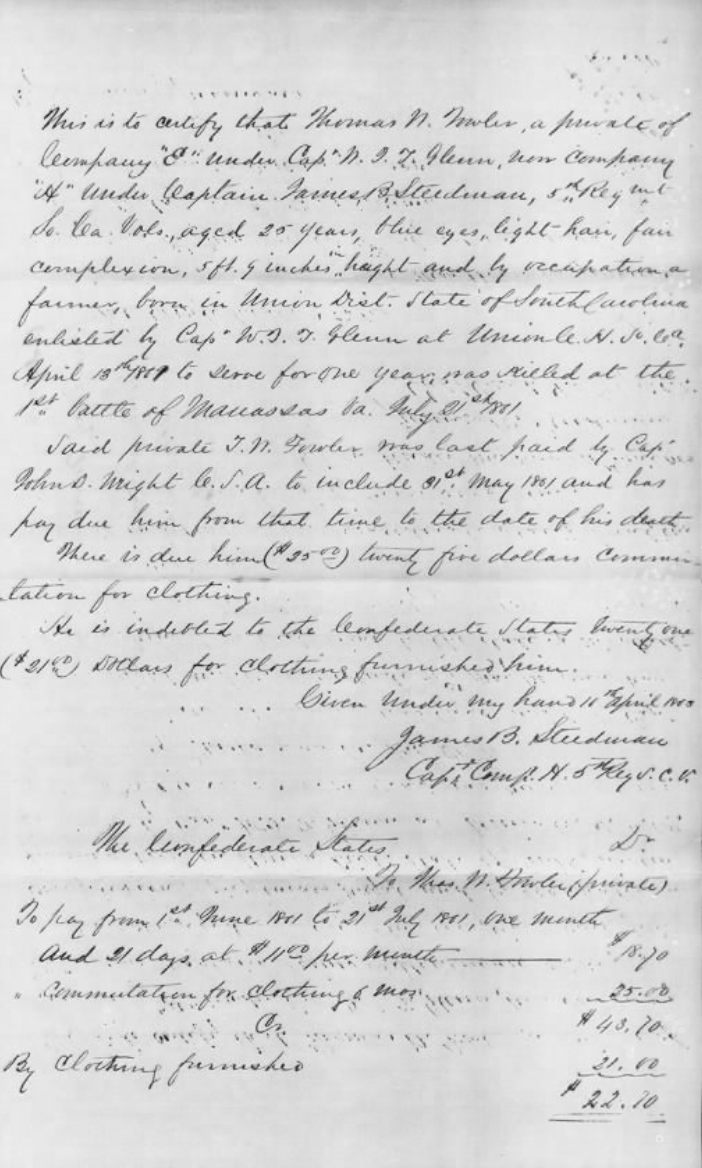 This is to certify that Thomas N. Fowler, a private of
Company "E" under Cap. W. J. T. Glenn, now company
"H" under Captain James B. Steedman, 5th Regmt
So. Ca. Vols., aged 25 years, blue eyes, light hair, fair
complexion, 5 ft. 9 inches in height and by occupation a
farmer, born in Union Dist. State of South Carolina
enlisted by Capt W. J. T. Glenn at Union C. H. So. Ca.
April 13th 1861 to serve for one year, was killed at the
1st battle of Manassas Va. July 21st 1861.
Said private T. N. Fowler was last paid by Capt
John D. Wright C. S. A. to include 31st May 1861 and has
pay due him from that time to the date of his death.
There is due him ($25.00) twenty five dollars commu-
tation for clothing.
He is indebted to the Confederate States twenty one
($21.00) Dollars for clothing furnished him.
Given under my hand April
James B. Steedman
Capt. Comp. H. 5th Reg S. C. V.
The Confederate States Dr
To Thos N. Fowler (private)
To pay from 1st June 1861 to 21st July 1861, one month
and 21 days at $11.00 per month $18.70
" Commutation for clothing 6 mos 25.00
Cr. $43.70
By Clothing furnished 21.00
$22.70